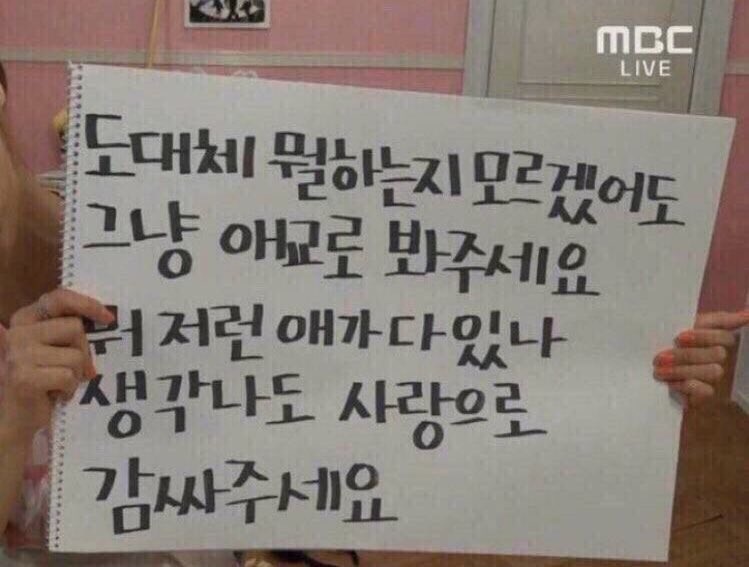 MBC
LIVE
도대체 뭘하는지 모르겠어도
그냥 애교로 봐주세요
뭐 저런 애가 다 있나
생각나도 사랑으로
감싸주세요